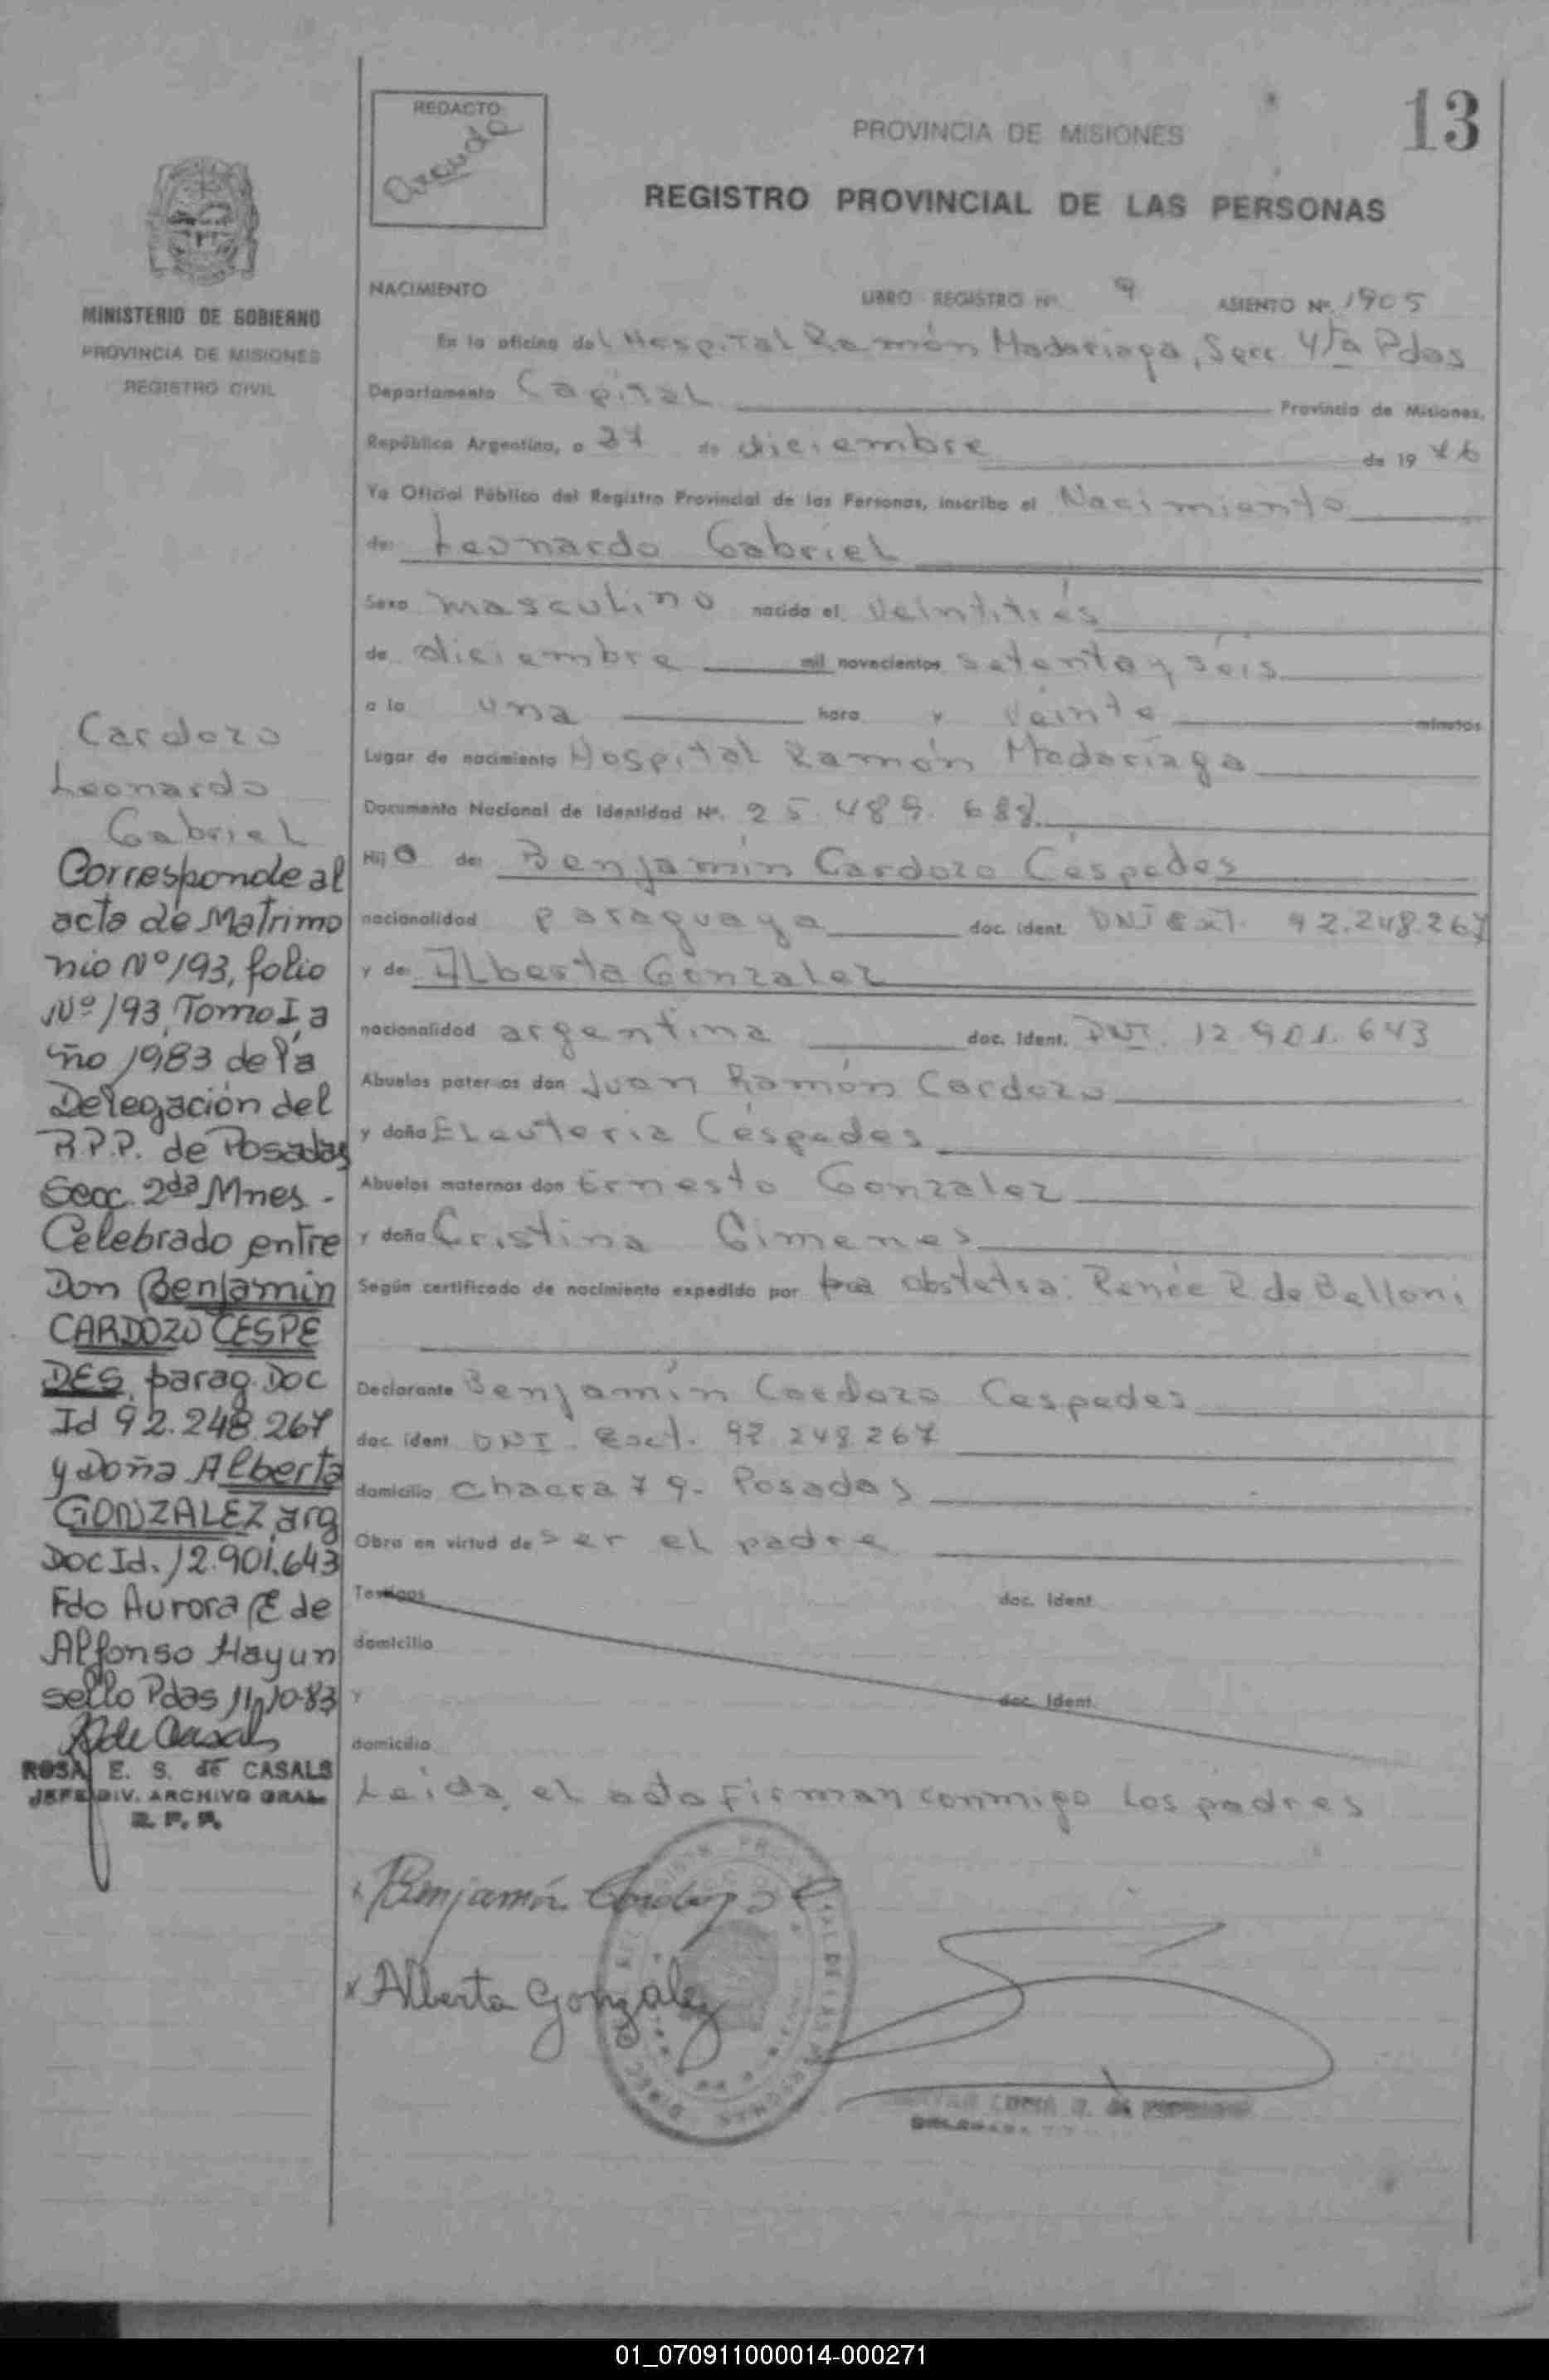 13
REDACTO
PROVINCIA DE MISIONES
REGISTRO PROVINCIAL DE LAS PERSONAS
MINISTERIO DE GOBIERNO
PROVINCIA DE MISIONES
REGISTRO CIVIL
NACIMIENTO LIBRO REGISTRO Nº 9 ASIENTO Nº 1905
En la oficina del Hospital Ramón Madariaga, Secc. 4ta Pdas
Departamento Capital Provincia de Misiones.
República Argentina, a 27 de diciembre de 19 76
Yo Oficial Público del Registro Provincial de las Personas, inscribo el Nacimiento
de: Leonardo Gabriel
Sexo masculino nacido el veintitrés
de diciembre mil novecientos setenta y séis
a la una hora y veinte minutos
Lugar de nacimiento Hospital Ramón Madariaga
Documento Nacional de Identidad Nº. 25.489.688
Hij o de: Benjamín Cardozo Céspedes
nacionalidad paraguaya doc. ident. DNI Ext. 92.248.267
y de: Alberta Gonzalez
nacionalidad argentina doc. ident. DNI. 12.901.643
Abuelos paternos don Juan Ramón Cardozo
y doña Eleuteria Céspedes
Abuelos maternos don Ernesto Gonzalez
y doña Cristina Gimenes
Según certificado de nacimiento expedido por obstetra: Renée R de Belloni
Declarante Benjamín Cardozo Cespedes
doc. ident DNI. Ext. 92.248.267
domicilio Chacra 79- Posadas
Obra en virtud de ser el padre
Testigos doc. ident.
domicilio
y doc. ident.
domicilio
Leída el acta firman conmigo los padres
Cardozo
Leonardo
Gabriel
Corresponde al
acta de Matrimo
nio Nº 193, folio
Nº 193, Tomo I, a
ño 1983 de la
Delegación del
R.P.P. de Posadas
Secc. 2da Mnes.-
Celebrado entre
Don Benjamin
CARDOZO CESPE
DES, parag. Doc
Id 92.248.267
y Doña Alberta
GONZALEZ, arg
Doc Id. 12.901.643
Fdo Aurora E de
Alfonso Hayun
sello Pdas 11-10-83
R de Casals
ROSA E. S. de CASALS
JEFE DIV. ARCHIVO GRAL
R. P. P.
x Benjamín Cardozo C
x Alberta Gonzalez
01_070911000014-000271